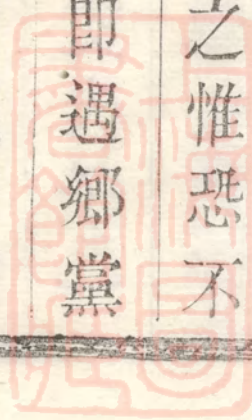 之惟恐不
即遇鄉黨